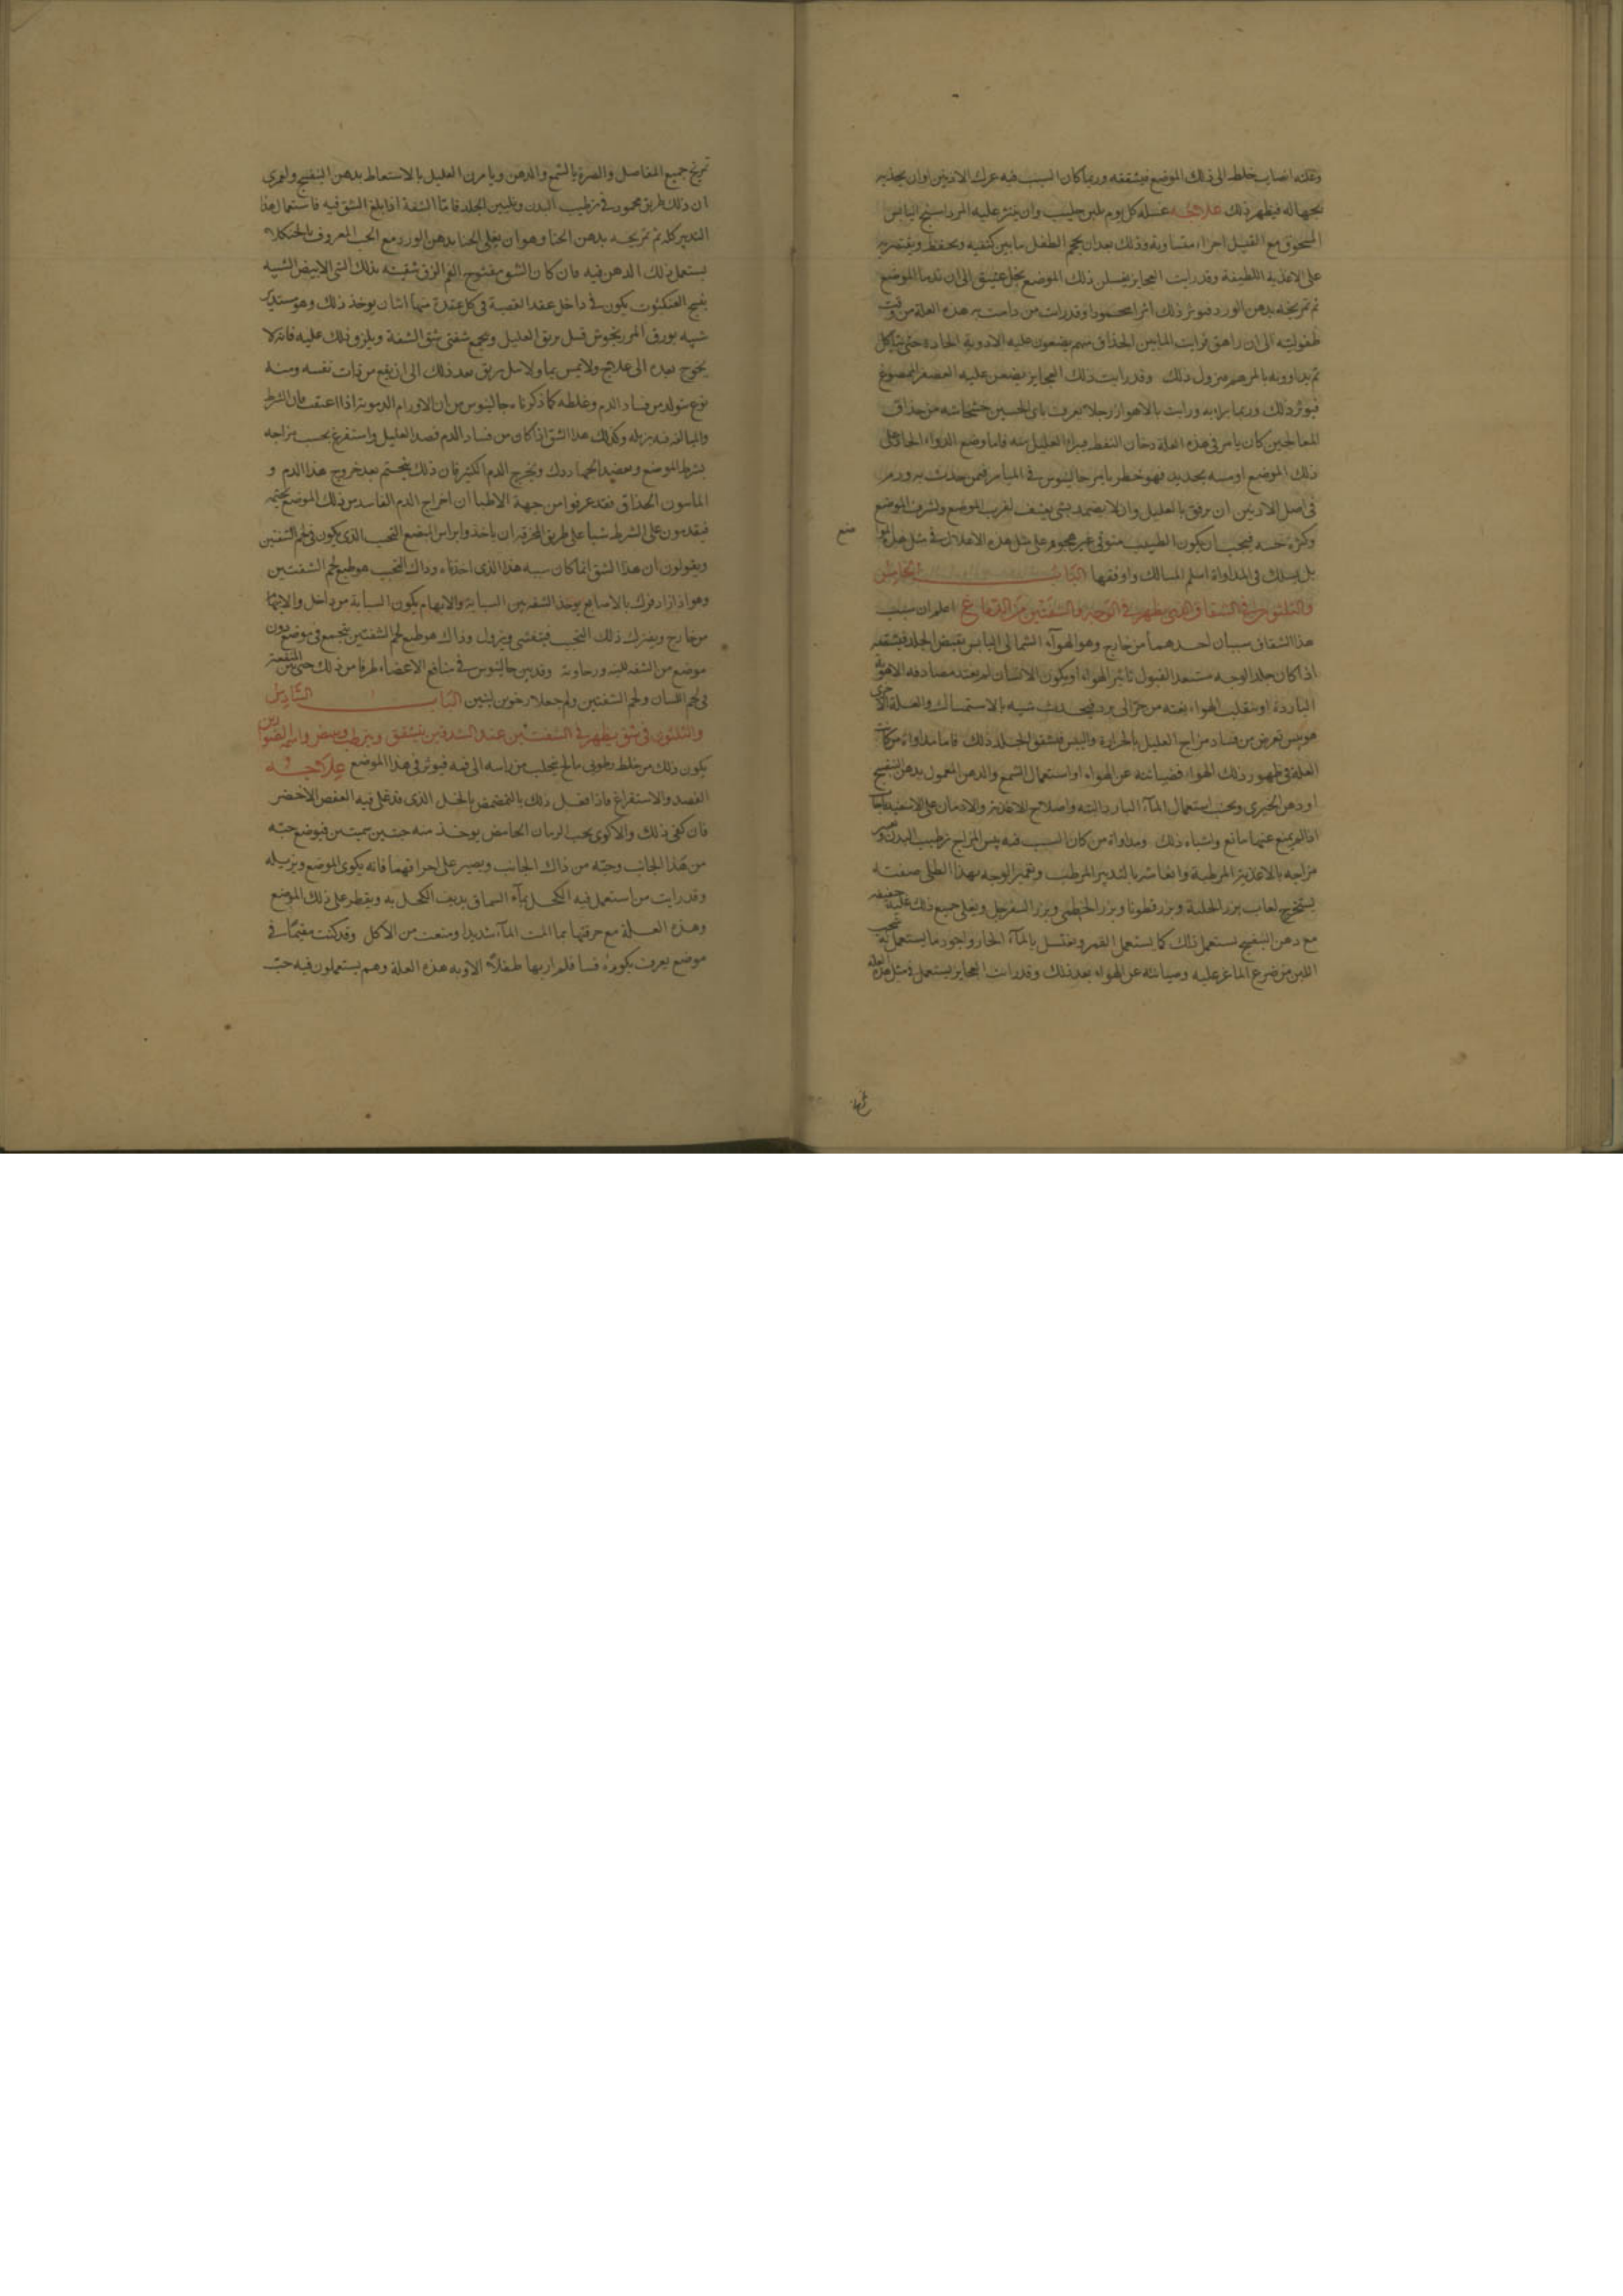 وعلته انصباب خلط الى ذلك الموضع فيشققه وربما كان السبب فيه عرك الاذنين او ان يجذبه
بجهاله فيظهر ذلك علاجه غسله كل يوم بلبن حليب وان ينثر عليه المرداسنج اليابس
المسحوق مع القنبيل اجزاء متساوية وذلك بعد ان يحجم الطفل ما بين كتفيه ويحفظ ويقتصر به
على الاغذية اللطيفة وقد رايت العجايز يغسلن ذلك الموضع بخل عتيق الى ان تدما الموضع
ثم تمريخه بدهن الورد فيوثر ذلك اثرا محمودا وقد رايت من دامت به هذه العلة من وقت
طفوليته الى ان راهق فرايت الماسين الحذاق منهم يضعون عليه الادوية الحادة حتى يتاكل
ثم يداوونه بالمرهم فيزول ذلك وقد رايت ذلك العجايز يضعن عليه العصفر الممضوغ
فيوثر ذلك وربما برا به ورايت بالاهواز رجلا يعرف بابى الحسين خشخاشه من حذاق
المعالجين كان يامر فى هذه العلة دخان النفط فيبراء العليل منه فاما وضع الدواء الحاد على
ذلك الموضع او مسه بحديد فهو خطر يامر جالينوس فى الميامر فيمن حدث به ورم
فى اصل الاذنين ان يرفق بالعليل وان لا يضمد بشى يعنف لقرب الموضع ولشرف الموضع
وكثرة حسه فيجب ان يكون الطبيب متوقى غير هجوم على مثل هذه الاعلال فى مثل هذه المواضع
بل يسلك فى المداواة اسلم المسالك واوفقها الباب الخامس
والثلثون فى الشقاق الذى يظهر فى الوجه والشفتين من الدماغ اعلم ان سبب
هذا الشقاق سببان احدهما من خارج وهو الهوآء الشمالى اليابس يقبض الجلد فيشققه
اذا كان جلد الوجه مستعدا لقبول تاثير الهواء او يكون الانسان لم يعتد مصادفه الاهوية
الباردة او ينقلب الهواء بغته من حر الى برد فيحدث شبيه بالاستمساك والعلة الاخرى
هو يبس يعرض من فساد مزاج العليل بالحرارة واليبس فيشقق الجلد ذلك فاما مداواة من كانت
العلة فى ظهور ذلك الهواء فصيانته عن الهواء او استعمال الشمع والدهن المعمول بدهن البنفسج
او دهن الخيرى وتجنب استعمال المآء البارد البته واصلاح الاغذية والادمان على الاسفيدباجات
اذا لم يمنع عنها مانع واشباه ذلك ومداواة من كان السبب فيه يبس المزاج ترطيب البدن
مزاجه بالاغذية المرطبة وانعاشه بالتدبير المرطب وتغمير الوجه بهذا الطلى صفته
يستخرج لعاب بزر الحلبة وبزر قطونا وبزر الخطمى وبزر السفرجل ويغلى جميع ذلك غلية خفيفه
مع دهن البنفسج يستعمل ذلك كما يستعمل الغمر ويغتسل بالمآء الحار واجود ما يستعمل فيه شخب
اللبن من ضرع الماعز عليه وصيانته عن الهواء بعد ذلك وقد رايت العجايز يستعملن فى مثل هذه العلة
تمريخ جميع المفاصل والصرة بالشمع والدهن ويامرن العليل بالاستعاط بدهن البنفسج ولعمرى
ان ذلك طريق محمود فى ترطيب البدن وتليين الجلد فامّا الشفة اذا بلغ الشق فيه فاستعمال هذا
التدبير كله ثم تمريخه بدهن الحنا وهو ان يغلى الحنا بدهن الورد مع الحب المعروف
يستعمل ذلك الدهن فيه فان كان الشق مفتوح الفم الزق شفته بذلك الشى الابيض الشبيه
بنسج العنكبوت يكون فى داخل عقد القصبة فى كل عقدة منها اثنان يوخذ ذلك وهو مستدير
شبيه بورق المرزنجوش فيبل بريق العليل ويجمع شفتى شق الشفة ويلزق ذلك عليه فانه لا
يحوج بعده الى علاج ولا يمس بماء ولا يبل بريق بعد ذلك الى ان يقع من ذات نفسه ومنه
نوع يتولد من فساد الدم وغلظه كما ذكرناه جالينوس من ان الاورام الدموية اذا اعتقت فان الشرط
والمبالغه فيه يزيله وكذلك هذا الشق اذا كان من فساد الدم فصد العليل واستفرغ بحسب مزاجه
يشرط الموضع ويخرج الدم الكثير فان ذلك يلتحم بعد خروج هذا الدم و
الماسون الحذاق فقد عرفوا من جهة الاطبا ان اخراج الدم الفاسد من ذلك الموضع يختمه
فيقدمون على الشرط شيا على طريق المخرقه ان ياخذوا براس المبضع التحبب الذى يكون فى لحم الشفتين
ويقولون ان هذا الشق انما كان سببه هذا الذى اخذناه وذاك التحبب هو طبع لحم الشفتين
وهو اذا اردفرك بالاصابع يوخذ الشفه بين السبابة والابهام يكون السبابة من داخل والابهام
من خارج ويفرك ذلك التحبب فينفشى ويزول وذاك هو طبع لحم الشفتين يتجمع فى موضع دون
موضع من الشفه للينه ورخاوته وقد بين جالينوس فى منافع الاعضاء طرفا من ذلك حتى بين المنفعة
فى لحم اللسان ولحم الشفتين ولم جعلا رخوين لينين الباب السادس
والثلثون فى شق يظهر فى الشفتين عند الشدقين يتشقق ويترطب ويبيض
يكون ذلك من خلط رطوبى مالح يتحلب من راسه الى فيه فيوثر فى هذا الموضع علاجه
الفصد والاستفراغ فاذا فعل ذلك بالتمضمض بالخل الذى قد غلى فيه العفص الاخضر
فان كفى ذلك والا كوى بحب الرمان الحامض يوخذ منه حبتين سميتين فيوضع حبّه
من هذا الجانب وحبّه من ذاك الجانب ويصبر على احراقهما فانه يكوى الموضع ويزيله
وقد رايت من استعمل فيه الكحل بمآء السماق يديف الكحل به ويقطر على ذلك الموضع
وهذه العلة مع حرقتها مما المت المآ شديدا ومنعت من الاكل وقد كنت مقيمًا فى
موضع يعرف فلم ار بها طفلا الا وبه هذه العلة وهم يستعملون فيه حبّ